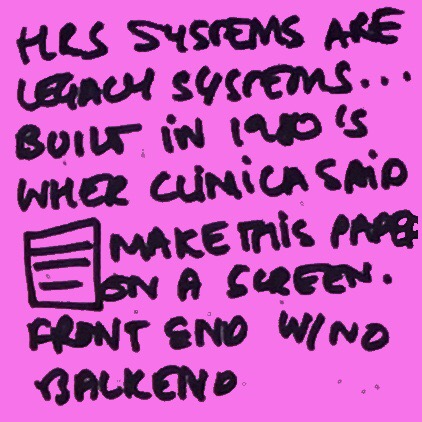 HRS SYSTEMS ARE
LEGACY SYSTEMS...
BUILT IN 1980'S
WHEN CLINICA SAID
MAKE THIS PAPER
ON A SCREEN.
FRONT END W/ NO
BACKEND